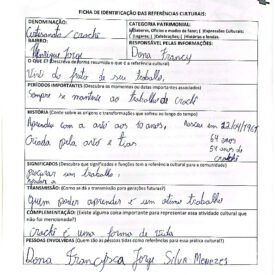 FICHA DE IDENTIFICAÇÃO DAS REFERÊNCIAS CULTURAIS:
DENOMINAÇÃO:
CATEGORIA PATRIMONIAL:
(Saberes, Ofícios e modos de fazer; ) (Expressões Culturais;
(Lugares; ) (Celebrações;) (Histórias e lendas.
BAIRRO:
RESPONSÁVEL PELAS INFORMAÇÕES:
Jorge
Dona Francy
O QUE É? (Descreva de forma resumida o que é a referência cultural)
Vive do fruto de seu trabalho,
PERÍODOS IMPORTANTES (Descubra os momentos ou datas importantes associados)
Sempre se manteve ao trabalho do crochê
HISTÓRIA (Conte sobre as origens e transformações que sofreu ao longo do tempo)
Aprendeu com a avó aos 10 anos,
Criada pela avó e tias
64 anos
54 anos de
crochê
SIGNIFICADOS (Descubra que significados e funções tem a referência cultural para a comunidade)
um trabalho,
TRANSMISSÃO: (Como se dá a transmissão para gerações futuras?)
Quem poder aprender é um ótimo trabalho
COMPLEMENTAÇÃO: (Existe alguma coisa importante para representar essa atividade cultural que
não foi mencionada?)
Crochê é uma forma de vida
PESSOAS ENVOLVIDAS (Quem são as pessoas tidas como referências para essa prática cultural?)
Dona Francisca Jorge Silva Menezes